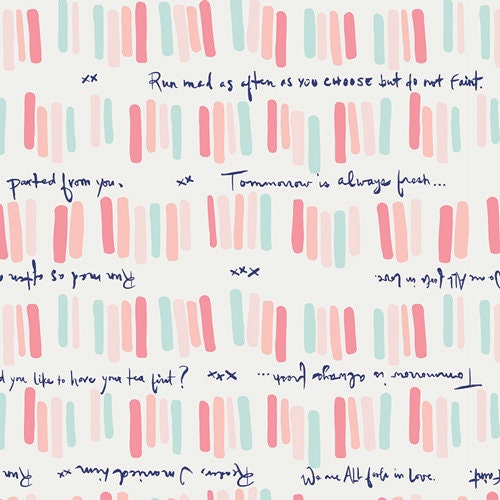 xx Run mad as often as you choose but do not faint.
parted from you. xx Tommorrow is always fresh...
Run mad as often xxx We are All fools in love.
d you like to have your tea first? xxx Tommorrow is always fresh...
Run xx Reader, I married him We are All fools in love. faint.